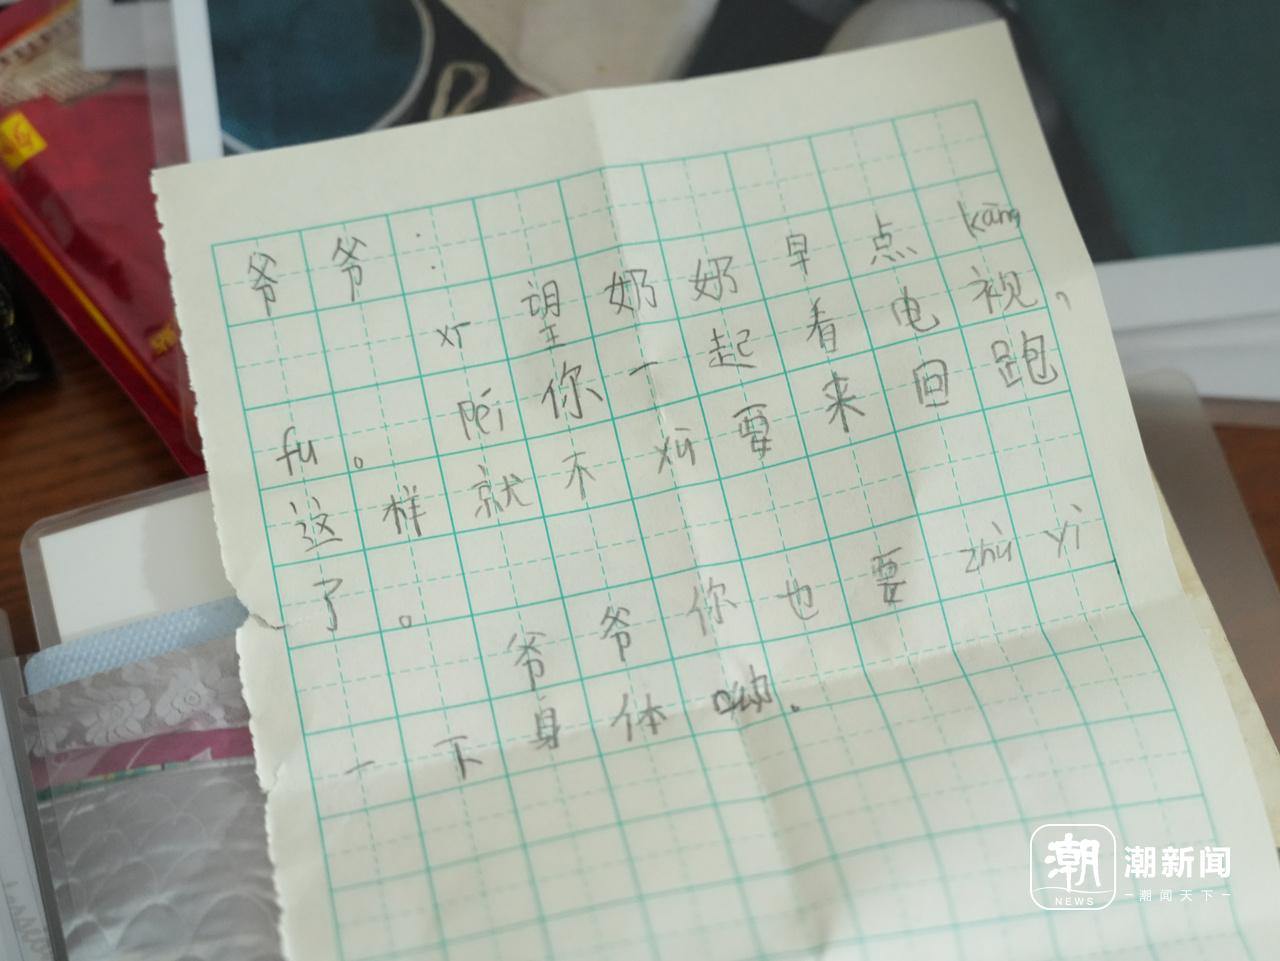 爷爷：
xī望奶奶早点kāng
fu。péi你一起看电视，
这样就不xū要来回跑
了。
爷爷你也要zhù yì
一下身体呦.
潮新闻
潮闻天下
潮
NEWS